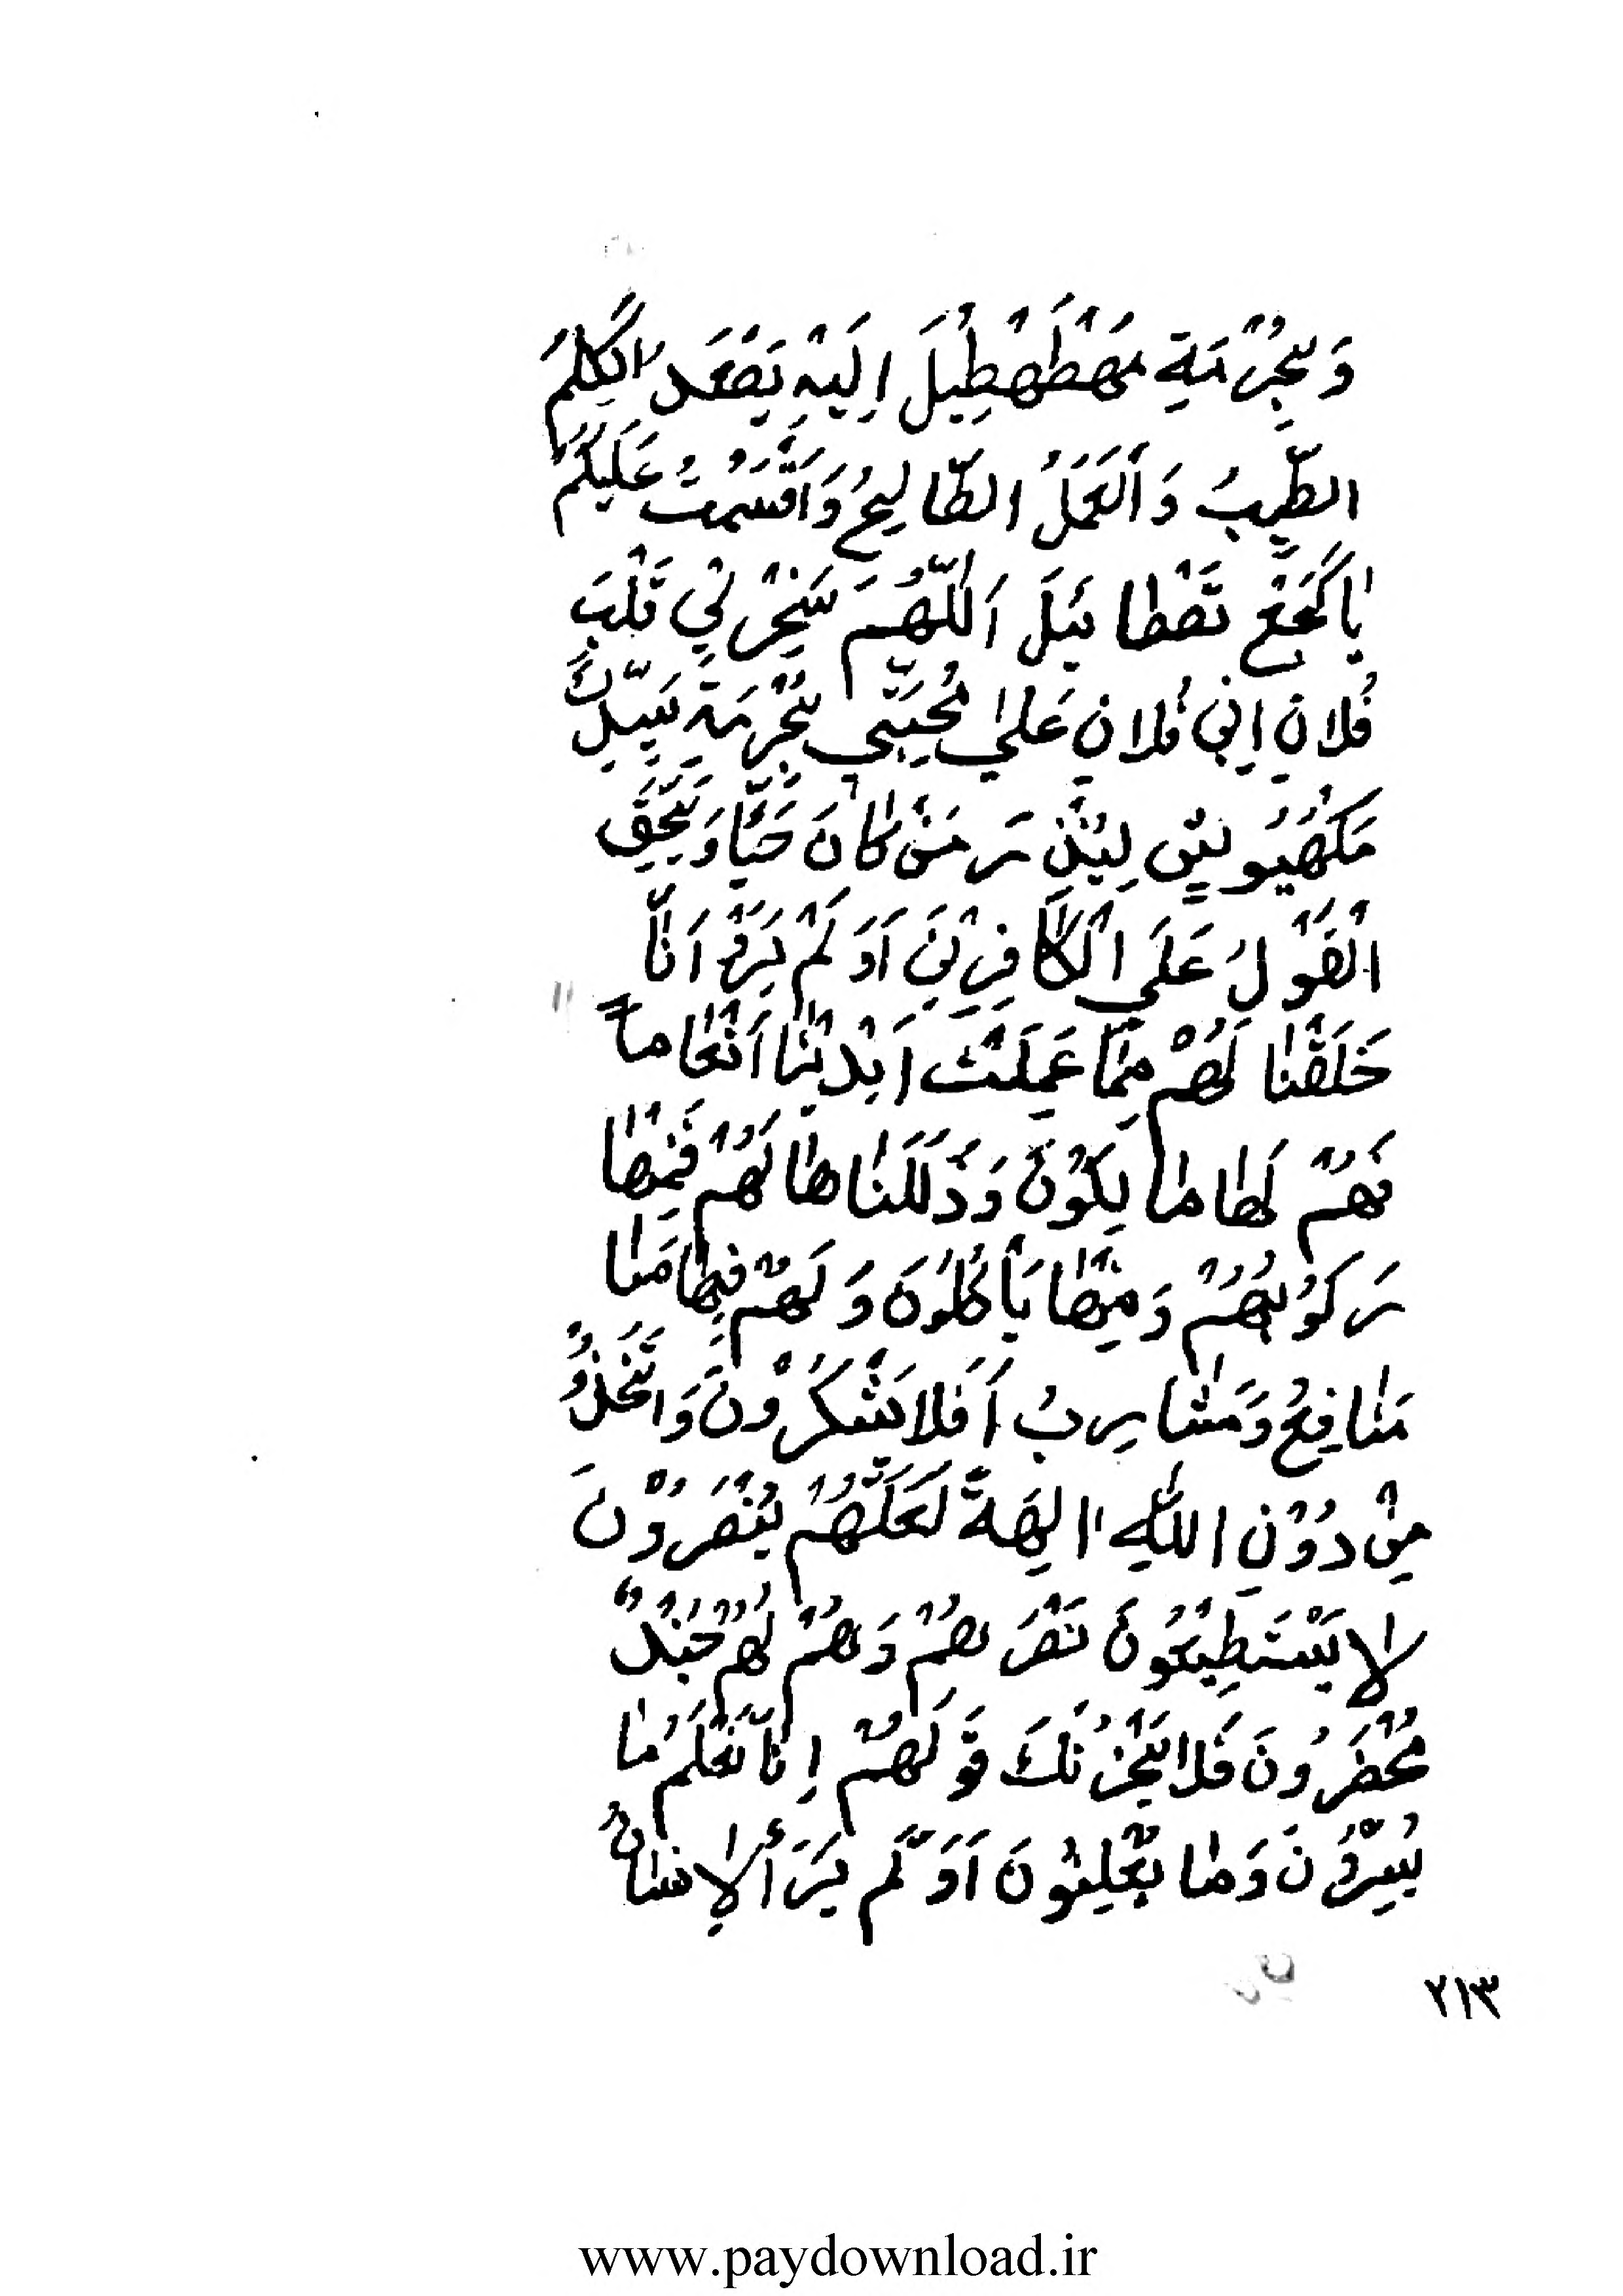 وَبِحُرْمَةِ مَهْطَهْطِيْلَ اِلَيْهِ يَصْعَدُ الْكَلِمُ
الطَّيِّبُ وَاَلْعَمَلُ الصَّالِحُ وَاَقْسَمْتُ عَلَيْكُمْ
يٰا كَجَعْ تَقْطٰا ئِيَلَ اَللّٰهُمَ سَخِّرْ لِيْ قَلْبَ
فُلانِ اِبْنِ فُلانِ عَليٰ مُحِبَّتِي بِحُرْمَةِ
لِيُنْذِرَ مَنْ كٰانَ حَيًّا وَيَحِقَ
الْقَوْلُ عَلَي الْكٰافِرِيْنَ اَوَلَمْ يَرَوْ اَنّٰا
خَلَقْنٰا لَهُمْ مِمّٰا عَمِلَتْ اَيْدِيْنٰا اَنْعٰاماً
فَهُمْ لَهٰا مٰا لِكُوْنَ وَذَلَلَنٰاهٰا لَهُمْ فَمِنْهٰا
رَكُوْبُهُمْ وَمِنْهٰا يَأْكُلُوُنَ وَلَهُمْ فِيهٰا مَنٰا
مَنٰافِعُ وَمَشٰارِبُ اَفَلا يَشْكُرُوْنَ وَاتَّخَذُوُ
مِنْ دُوْنِ اللّٰهِ اٰلِهَةً لَعَلَّهُمْ يُنْصَرُوْنَ
لٰا يَسْتَطِيْعُوُنَ نَصْرَهُمْ وَهُمْ لَهُمْ جُنْدٌ
مُحْضَرُونَ فَلا يَحْزُنْكَ قَوَلَهُمْ اِنّٰا نَعْلَمُ مٰا
يُسِرّوُنَ وَمٰا يُعْلِنوُنَ اَوَ لَّم يَرَ أَلاِنسٰانُ
٢١٣
www.paydownload.ir